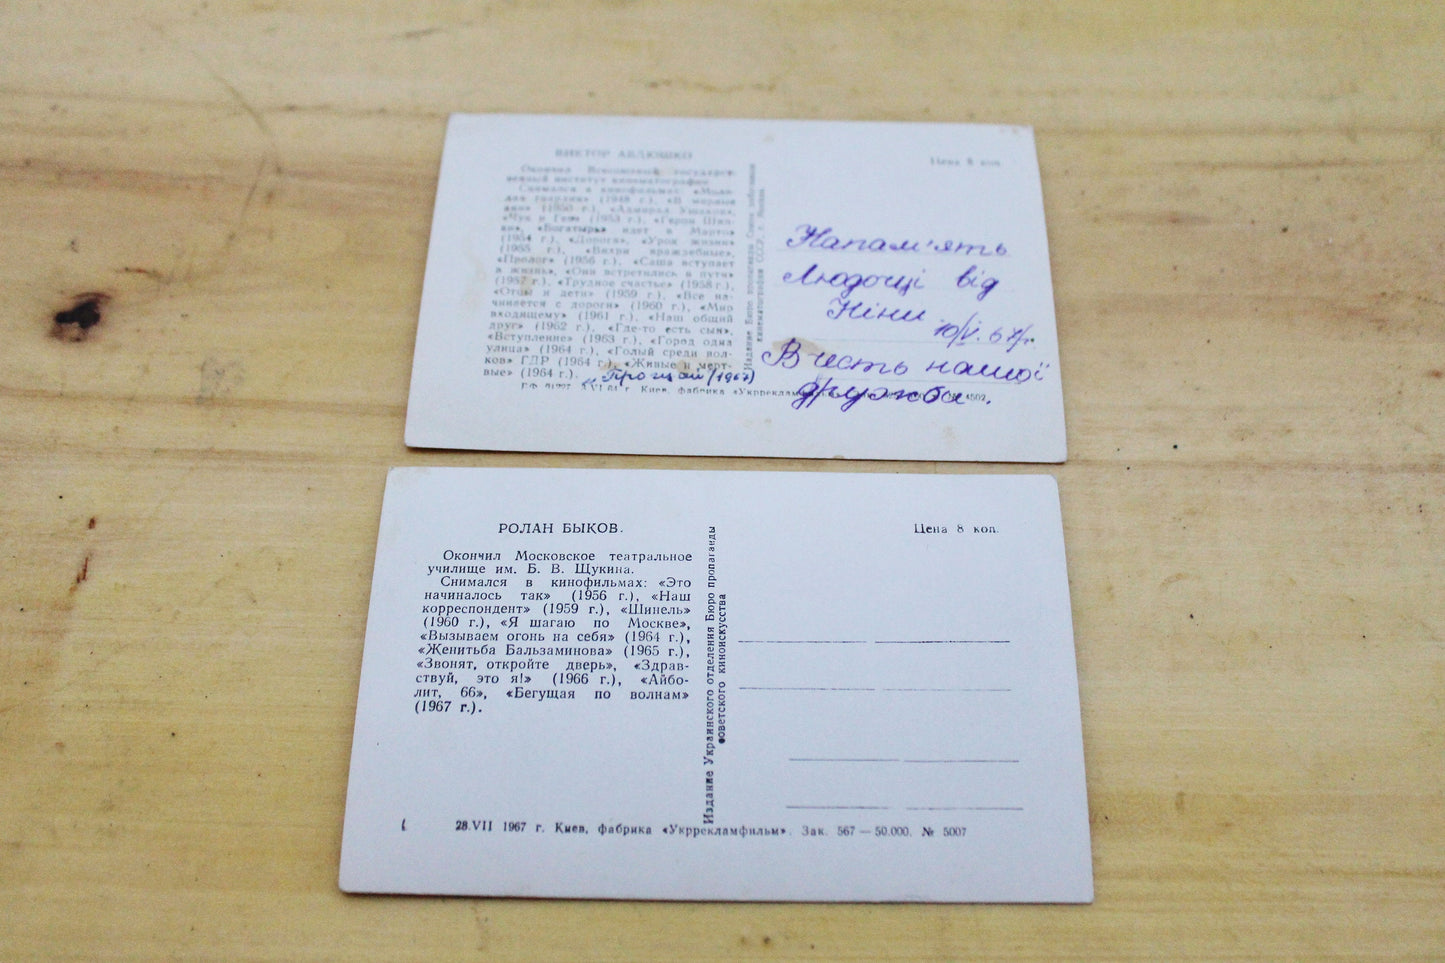 ВИКТОР АВДЮШКО
Окончил Всесоюзный государст-
венный институт кинематографии.
Снимался в кинофильмах: «Моло-
дая гвардия» (1948 г.), «В мирные
дни» (1950 г.), «Адмирал Ушаков»,
«Чук и Гек» (1953 г.), «Герои Шип-
ки», «Богатырь» идет в Марто»
(1954 г.), «Дорога», «Урок жизни»
(1955 г.), «Вихри враждебные»,
«Пролог» (1956 г.), «Саша вступает
в жизнь», «Они встретились в пути»
(1957 г.), «Трудное счастье» (1958 г.),
«Отцы и дети» (1959 г.), «Все на-
чинается с дороги» (1960 г.), «Мир
входящему» (1961 г.), «Наш общий
друг» (1962 г.), «Где-то есть сын»,
«Вступление» (1963 г.), «Город одна
улица» (1964 г.), «Голый среди вол-
ков» ГДР (1964 г.), «Живые и мерт-
вые» (1964 г.).
„Прощай (1967)
г. Киев, фабрика «Укррекламфильм»
Издание Бюро пропаганды Союза работников
кинематографии СССР, г. Москва.
Цена 8 коп.
Напам'ять
Людочці від
Ніни
10/V.67/г.
В честь нашої
дружби.
РОЛАН БЫКОВ.
Окончил Московское театральное
училище им. Б. В. Щукина.
Снимался в кинофильмах: «Это
начиналось так» (1956 г.), «Наш
корреспондент» (1959 г.), «Шинель»
(1960 г.), «Я шагаю по Москве»,
«Вызываем огонь на себя» (1964 г.),
«Женитьба Бальзаминова» (1965 г.),
«Звонят, откройте дверь», «Здрав-
ствуй, это я!» (1966 г.), «Айбо-
лит, 66», «Бегущая по волнам»
(1967 г.).
Издание Украинского отделения Бюро пропаганды
советского киноискусства
Цена 8 коп.
28.VII 1967 г. Киев, фабрика «Укррекламфильм». Зак. 567 — 50.000. № 5007